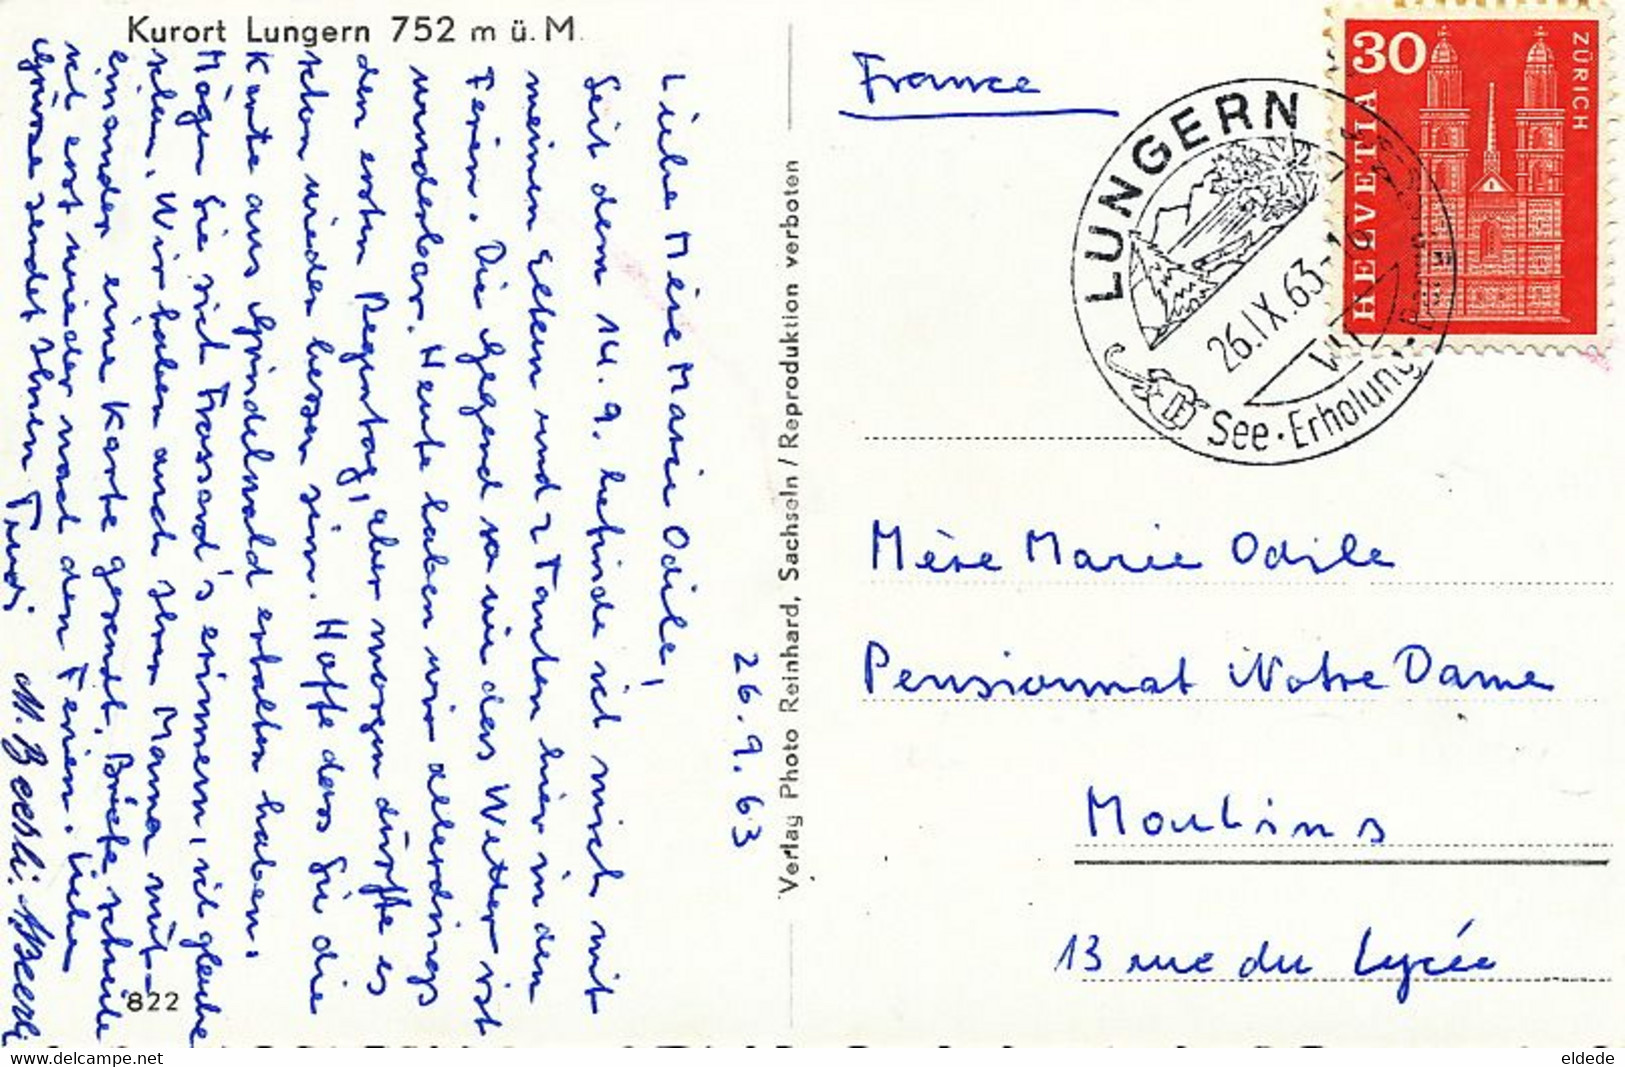 Kurort Lungern 752 m ü. M.
26. 9. 63
Liebe Mère Marie Odile,
Seit dem 14. 9. befinde ich mich mit
meinen Eltern und 2 Tanten hier in den
Ferien. Die Gegend so wie das Wetter ist
wunderbar. Heute haben wir allerdings
den ersten Regentag, aber morgen dürfte es
schon wieder besser sein. Hoffe dass Sie die
Karte aus Grindelwald erhalten haben.
Mögen Sie sich Frossard's erinnern, ich glaube
Wir haben auch
einander eine Karte gesendt. Briefe schreibe
ich erst wieder nach den Ferien. Liebe
Grüsse sendet Ihnen Trudi
822
Verlag Photo Reinhard, Sachseln / Reproduktion verboten
France
LUNGERN
26.IX.63
See·Erholung
30
HELVETIA
ZÜRICH
Mère Marie Odile
Pensionnat Notre Dame
Moulins
13 rue du Lycée
eldede